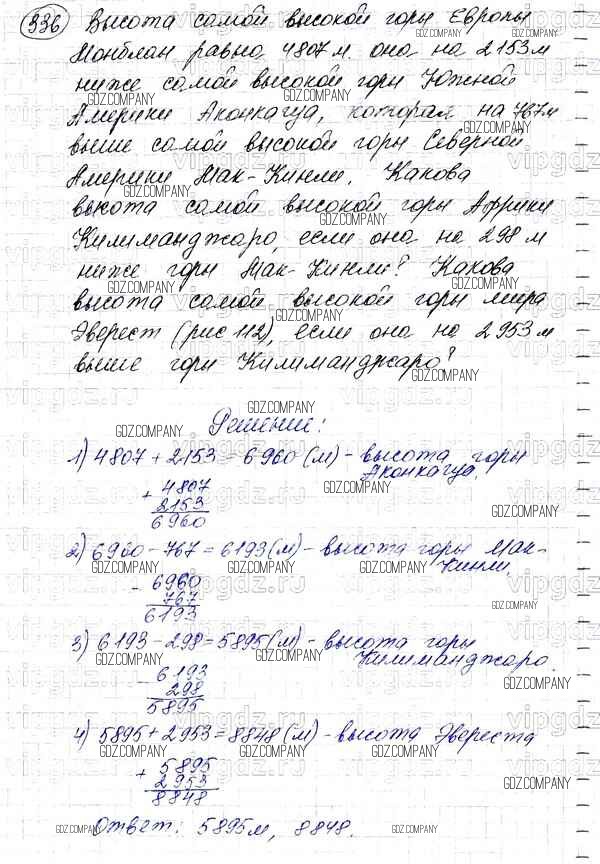 336 Высота самой высокой горы Европы
Монблан равна 4807 м. она на 2153 м
ниже самой высокой горы Южной
Америки Аконкагуа, которая на 767 м
выше самой высокой горы Северной
Америки Мак-Кинли. Какова
высота самой высокой горы Африки
Килиманджаро, если она на 298 м
ниже горы Мак-Кинли? Какова
высота самой высокой горы мира
Эверест (рис 112), если она на 2953 м
выше горы Килиманджаро?
Решение:
1) 4807 + 2153 = 6960 (м) - высота горы
Аконкагуа.
+ 4807
2153
6960
2) 6960 - 767 = 6193 (м) - высота горы Мак-
Кинли.
- 6960
767
6193
3) 6193 - 298 = 5895 (м) - высота горы
Килиманджаро.
- 6193
298
5895
4) 5895 + 2953 = 8848 (м) - высота Эвереста
+ 5895
2953
8848
Ответ: 5895 м, 8848.
GDZ.COMPANY
vipgdz.ru